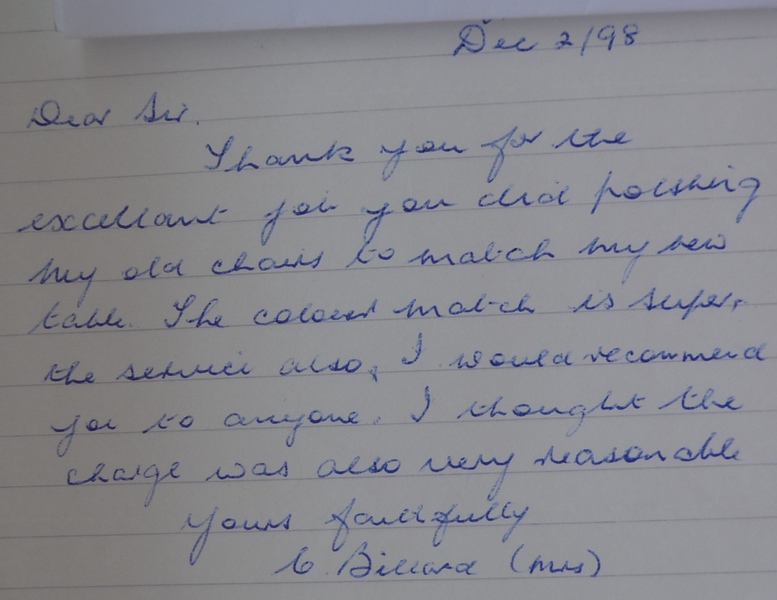 Dec 2/98
Dear Sir.
Thank you for the
excellant job you did polishing
my old chairs to match my new
table. The colour match is super,
the service also, I would recommend
you to anyone. I thought the
charge was also very reasonable
Yours faithfully
Billard (Mrs)